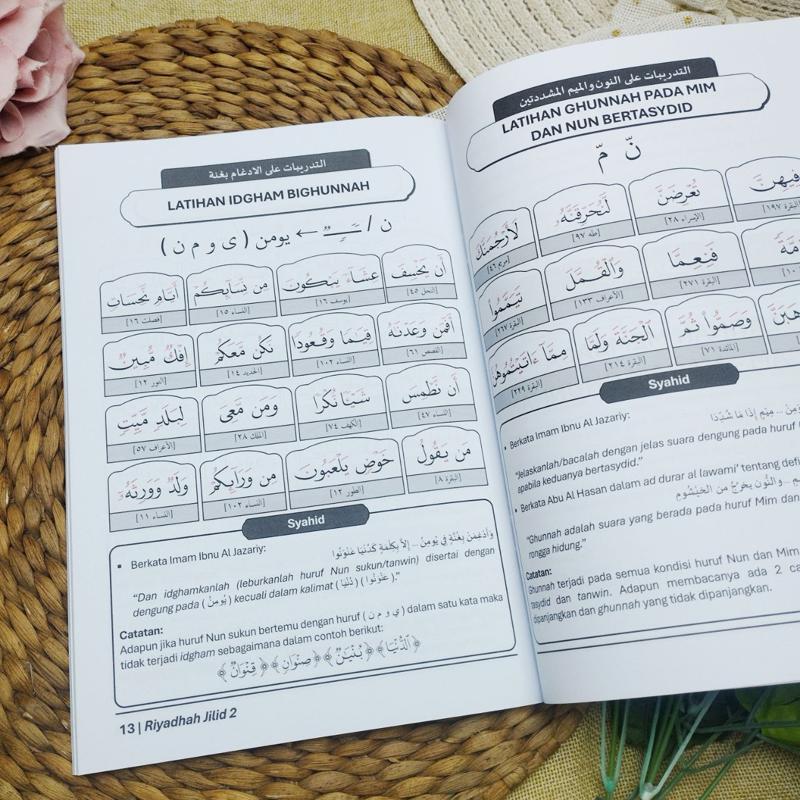 التدريبات على الادغام بغنة
LATIHAN IDGHAM BIGHUNNAH
ن / ـــًـٍـٌـــ ← يومن ( ي و م ن )
أَن يَخْسِفَ
النحل ٤٥
عِشَآءً يَبْكُونَ
يوسف ١٦
مِن نِّسَآئِكُمْ
النساء ١٥
أَيَّامٍ نَّحِسَاتٍ
فصلت ١٦
أَفَمَن وَعَدْنَٰهُ
القصص ٦١
قِيَٰمًا وَقُعُودًا
النساء ١٠٢
نَكُن مَّعَكُمْ
الحديد ١٤
إِفْكٌ مُّبِينٌ
النور ١٢
أَن نَّطْمِسَ
النساء ٤٧
شَيْئًا نُّكْرًا
الكهف ٧٤
وَمَن مَّعِىَ
الملك ٢٨
لِبَلَدٍ مَّيِّتٍ
الأعراف ٥٧
مَن يَقُولُ
البقرة ٨
خَوْضٍ يَلْعَبُونَ
الطور ١٢
مِن وَرَآئِكُمْ
النساء ١٠٢
وَلَدٌ وَوَرِثَهُۥٓ
النساء ١١
Syahid
• Berkata Imam Ibnu Al Jazariy: وَأَدْغِمَنْ بِغُنَّةٍ فِي يُومِنُ ... إِلاَّ بِكِلْمَةٍ كَدُنْيَا عَنْوَنُوا
"Dan idghamkanlah (leburkanlah huruf Nun sukun/tanwin) disertai dengan
dengung pada ( يُومِنُ ) kecuali dalam kalimat ( دُنْيَا ) ( عَنْوَنُوا )."
Catatan:
Adapun jika huruf Nun sukun bertemu dengan huruf ( ي و م ن ) dalam satu kata maka
tidak terjadi idgham sebagaimana dalam contoh berikut:
﴿ ٱلدُّنْيَا ﴾ ﴿ بُنْيَٰنٌ ﴾ ﴿ صِنْوَانٍ ﴾ ﴿ قِنْوَانٌ ﴾
13 | Riyadhah Jilid 2
التدريبات على النون والميم المشددتين
LATIHAN GHUNNAH PADA MIM
DAN NUN BERTASYDID
نّ مّ
فِيهِنَّ
البقرة ١٩٧
تُعْرِضَنَّ
الإسراء ٢٨
لَنُحَرِّقَنَّهُۥ
طه ٩٧
لَأَرْجُمَنَّكَ
مريم ٤٦
فَنِعِمَّا
البقرة ٢٧١
وَٱلْقُمَّلَ
الأعراف ١٣٣
تَيَمَّمُوا
البقرة ٢٦٧
وَصَمُّوا ثُمَّ
المائدة ٧١
ٱلْجَنَّةَ وَلَمَّا
البقرة ٢١٤
مِمَّآ ءَاتَيْتُمُوهُنَّ
البقرة ٢٢٩
Syahid
• Berkata Imam Ibnu Al Jazariy:
"Jelaskanlah/bacalah dengan jelas suara dengung pada huruf
apabila keduanya bertasydid."
• Berkata Abu Al Hasan dalam ad durar al lawami' tentang
"Ghunnah adalah suara yang berada pada huruf Mim dan
rongga hidung."
Catatan:
Ghunnah terjadi pada semua kondisi huruf Nun dan Mim
tasydid dan tanwin. Adapun membacanya ada 2
dipanjangkan dan ghunnah yang tidak dipanjangkan.